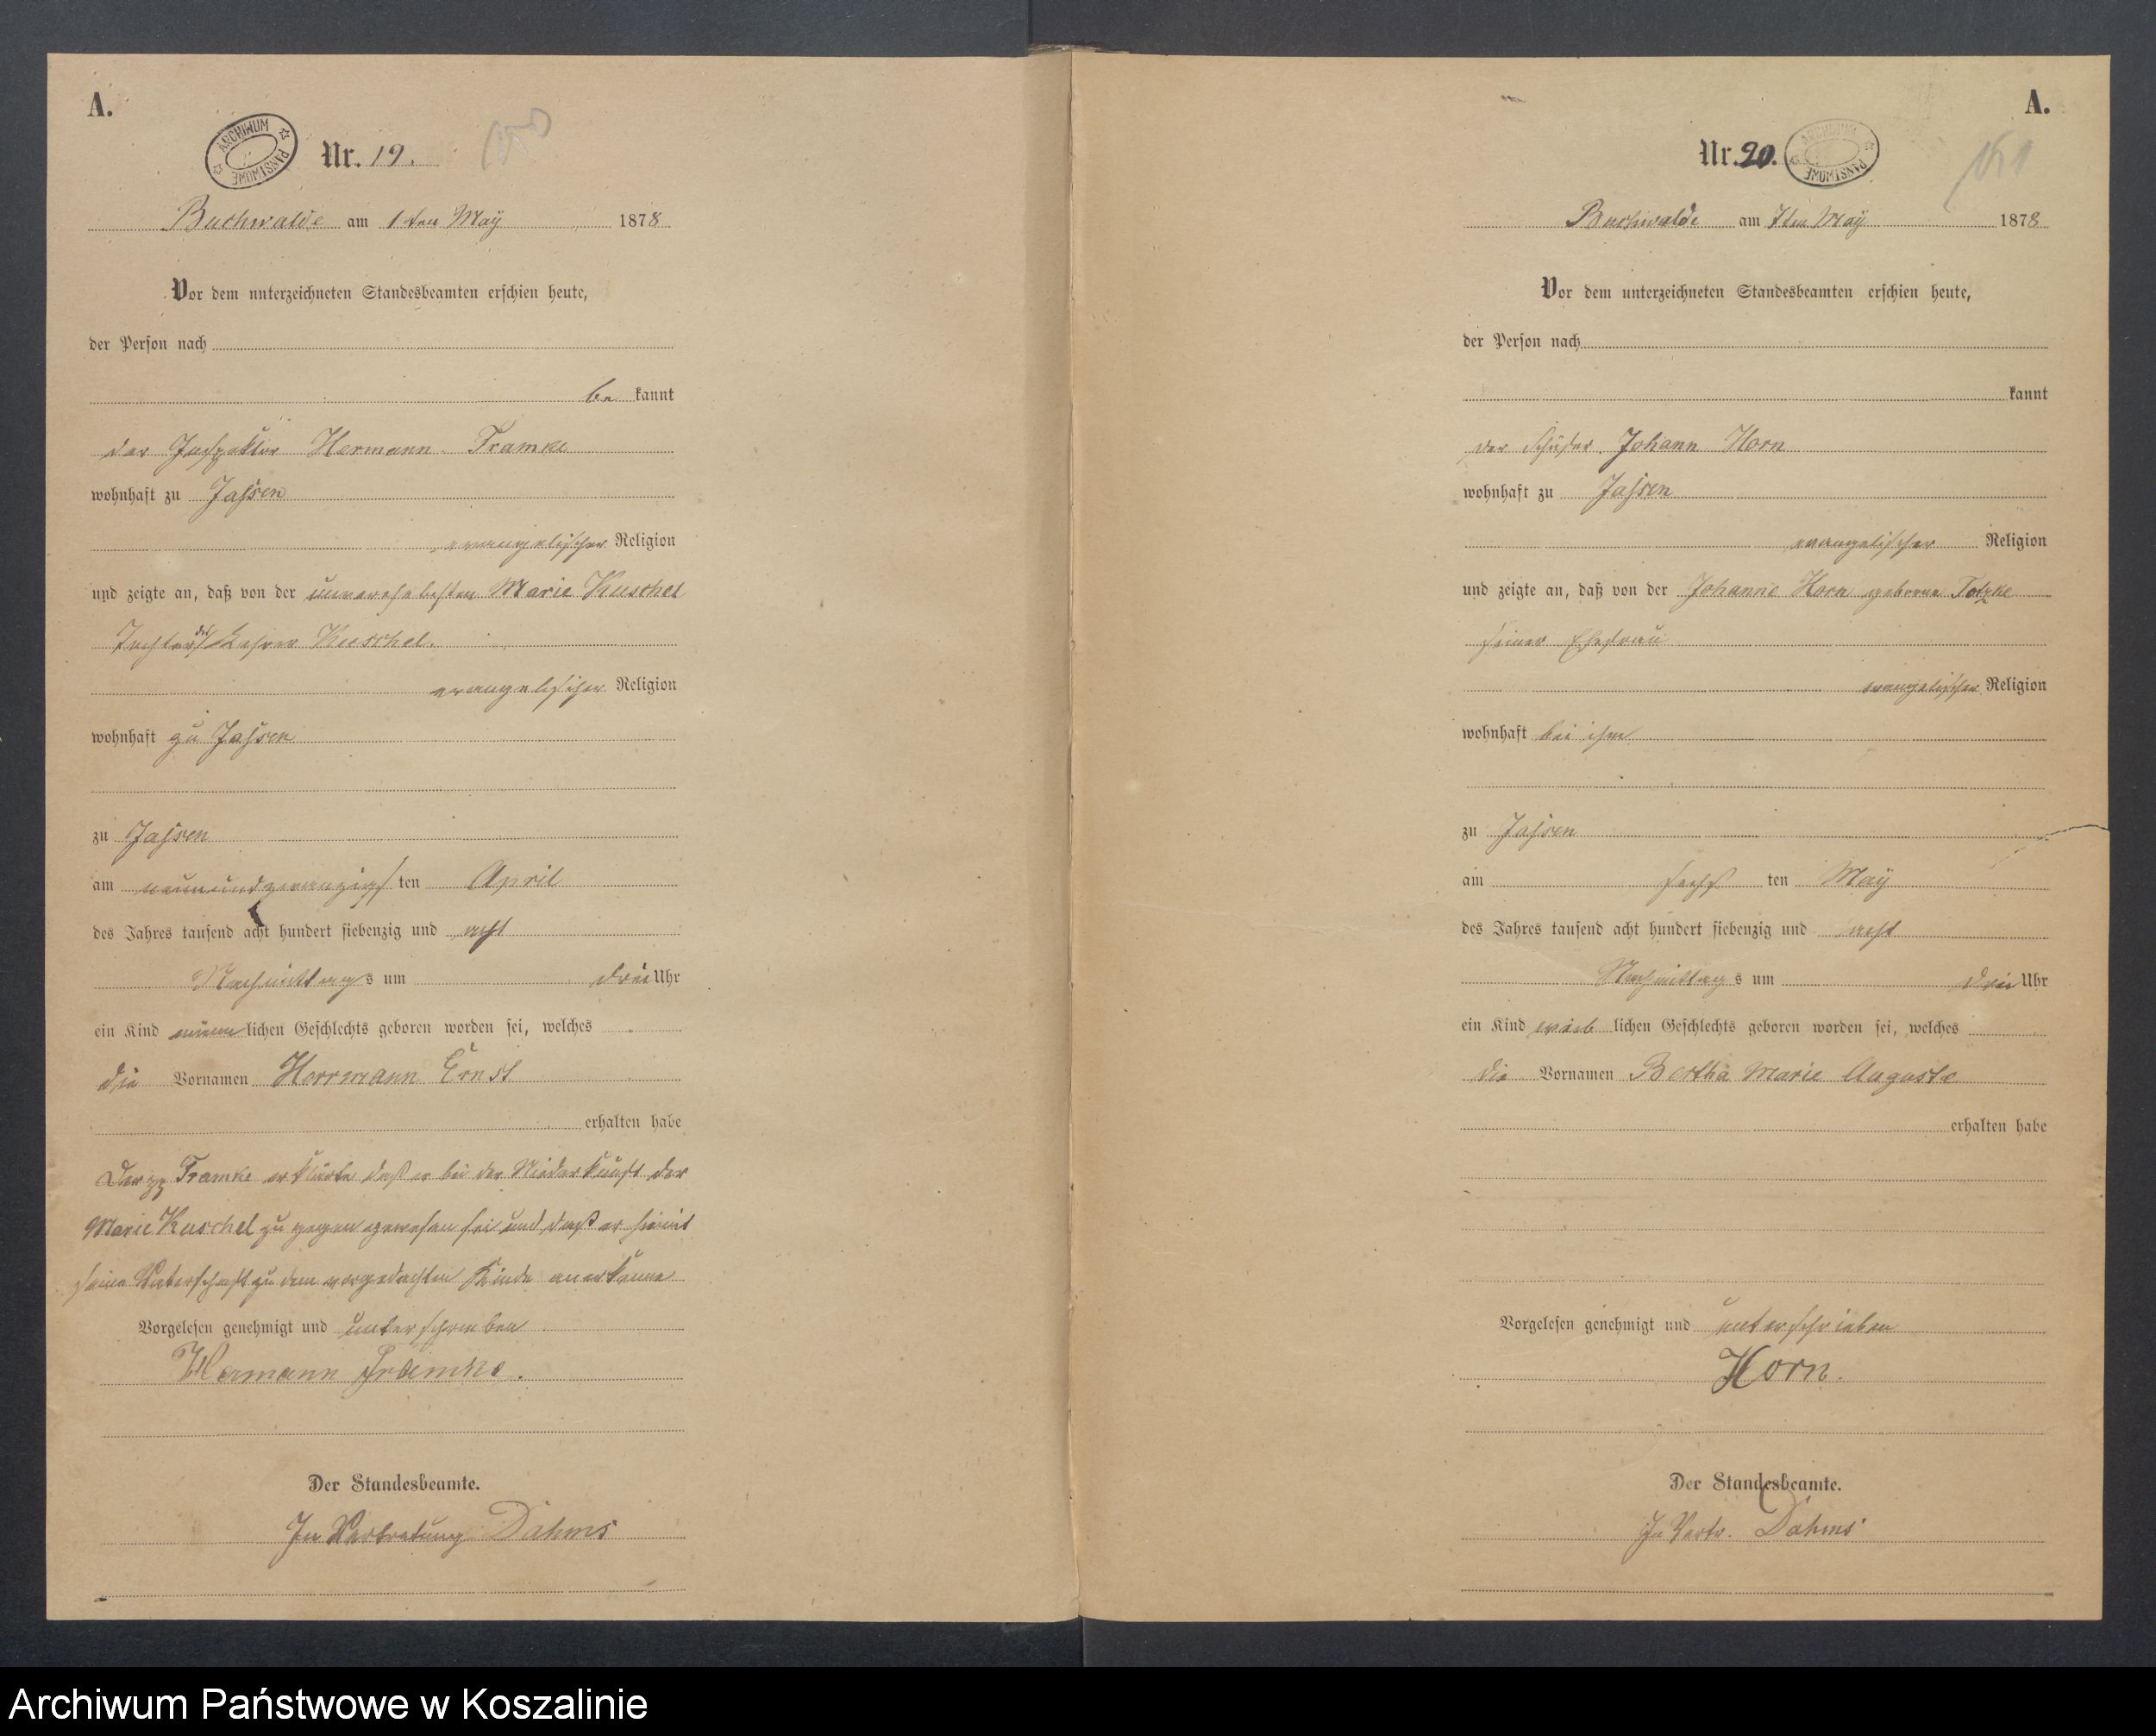 A.
ARCHIWUM PAŃSTWOWE
Nr. 19.
150
Buchwalde am 1ten Maÿ 1878
Vor dem unterzeichneten Standesbeamten erschien heute,
der Person nach
be kannt
der Inspektor Hermann Framke
wohnhaft zu Jassen
evangelischer Religion
und zeigte an, daß von der unverehelichten Marie Kuschel
Tochter des Lehrer Kuschel.
evangelischer Religion
wohnhaft zu Jassen
zu Jassen
am neunundzwanzigs ten April
des Jahres tausend acht hundert siebenzig und acht
Nachmittags um drei Uhr
ein Kind männ lichen Geschlechts geboren worden sei, welches
die Vornamen Herrmann Ernst
erhalten habe
Der pp Framke erklärte daß er bei der Niederkunft der
Marie Kuschel zugegen gewesen sei und daß er hiermit
seine Vaterschaft zu dem vorgedachten Kinde anerkenne
Vorgelesen genehmigt und unterschrieben
Hermann Framke.
Der Standesbeamte.
In Vertretung Dahms
A.
Nr. 20.
ARCHIWUM PAŃSTWOWE
151
Buchwalde am 7ten Maÿ 1878
Vor dem unterzeichneten Standesbeamten erschien heute,
der Person nach
kannt
der Johann Horn
wohnhaft zu Jassen
evangelischer Religion
und zeigte an, daß von der Johanne Horn geborene Totzke
seiner Ehefrau
evangelischer Religion
wohnhaft bei ihm
zu Jassen
am sechs ten Maÿ
des Jahres tausend acht hundert siebenzig und acht
Nachmittags um drei Uhr
ein Kind weib lichen Geschlechts geboren worden sei, welches
die Vornamen Bertha Marie Auguste
erhalten habe
Vorgelesen genehmigt und unterschrieben
Horn.
Der Standesbeamte.
In Vertr. Dahms
Archiwum Państwowe w Koszalinie